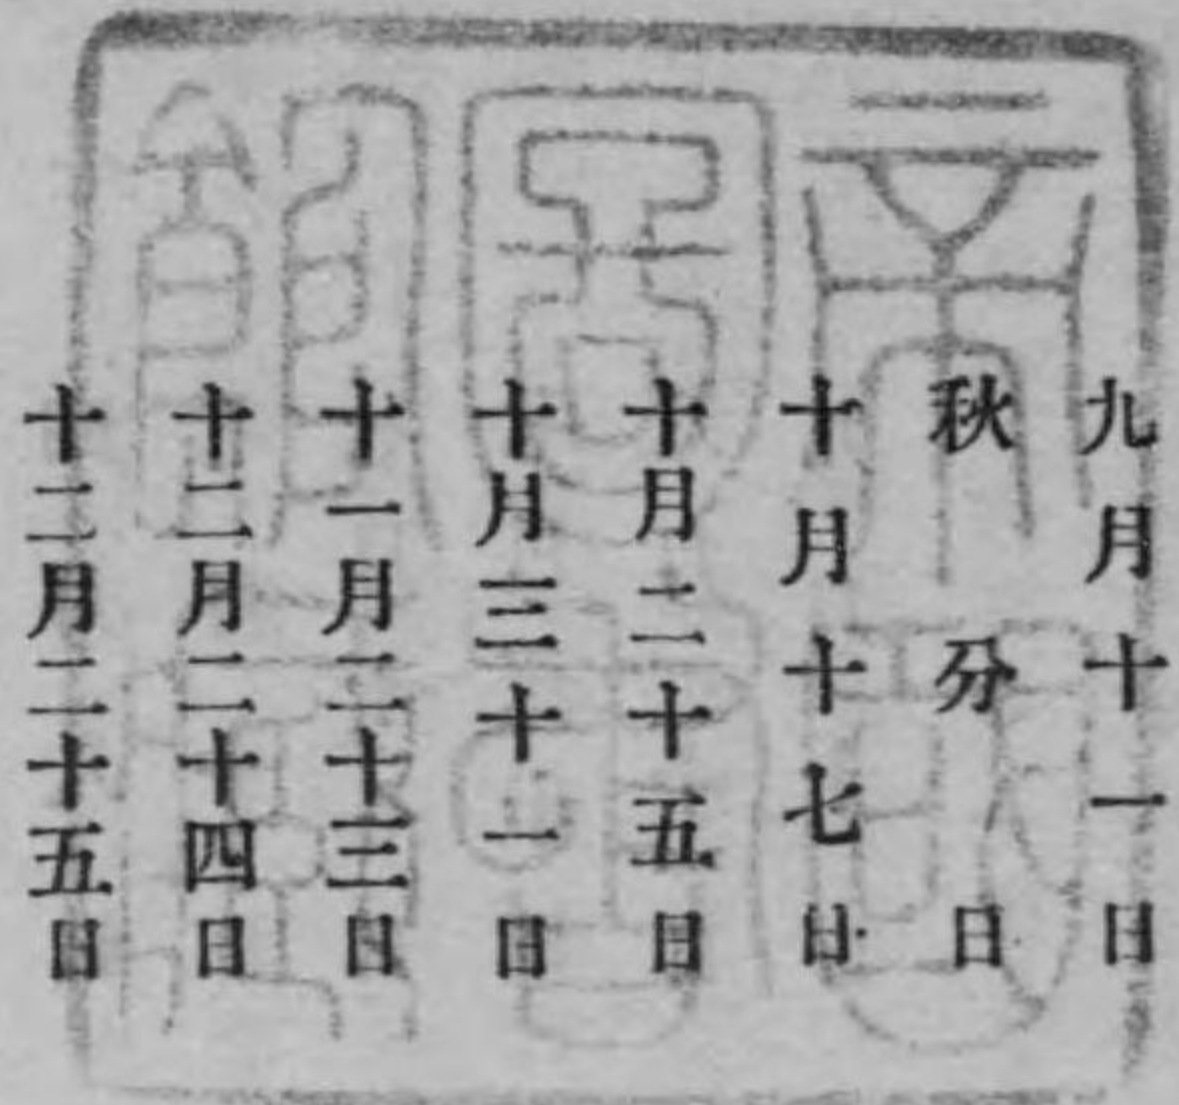 九月十一日
秋分日
十月十七日
十月二十五日
十月三十一日
十一月二十三日
十二月二十四日
十二月二十五日